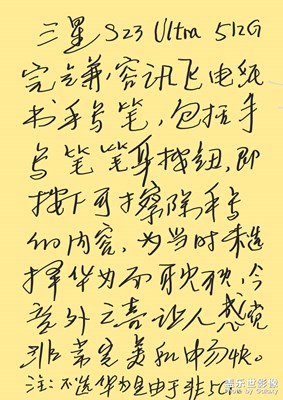 三星 S23 Ultra 512G
完全兼容讯飞电纸
书手写笔，包括手
写笔笔耳按钮，即
按下可擦除手写
的内容，为当时未选
择华为而耿耿，今
意外之喜让人感觉
非常完美和畅快。
注：不选华为是由于非5G